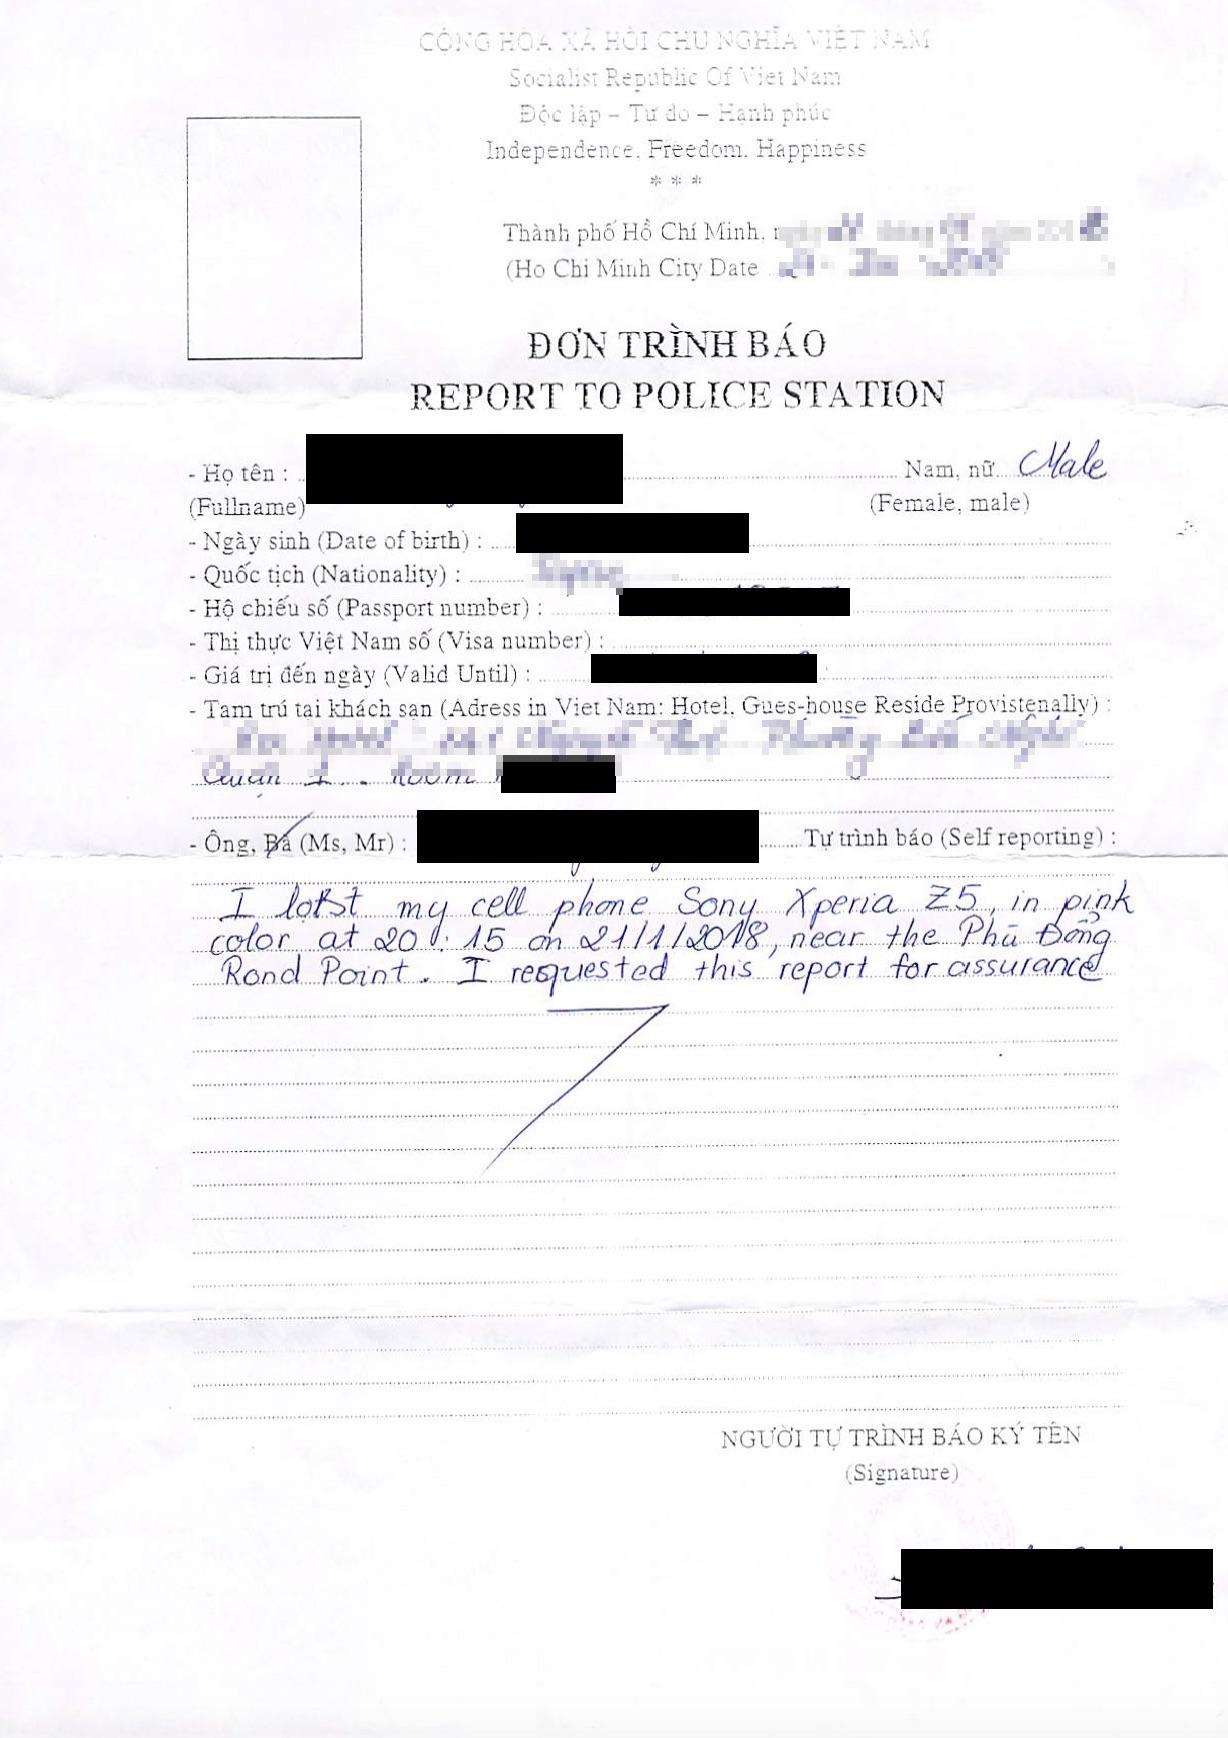 CỘNG HÒA XÃ HỘI CHỦ NGHĨA VIỆT NAM
Socialist Republic Of Viet Nam
Độc lập – Tự do – Hạnh phúc
Independence. Freedom. Happiness
* * *
Thành phố Hồ Chí Minh,
(Ho Chi Minh City Date
ĐƠN TRÌNH BÁO
REPORT TO POLICE STATION
- Họ tên : Nam, nữ Male
(Fullname) (Female, male)
- Ngày sinh (Date of birth) :
- Quốc tịch (Nationality) :
- Hộ chiếu số (Passport number) :
- Thị thực Việt Nam số (Visa number) :
- Giá trị đến ngày (Valid Until) :
- Tam trú tại khách sạn (Adress in Viet Nam: Hotel. Gues-house Reside Provistenally) :
- Ông, Bà (Ms, Mr) : Tự trình báo (Self reporting) :
I lost my cell phone Sony Xperia Z5, in pink
color at 20 : 15 on 21/1/2018, near the Phù Đổng
Rond Point. I requested this report for assurance
NGƯỜI TỰ TRÌNH BÁO KÝ TÊN
(Signature)